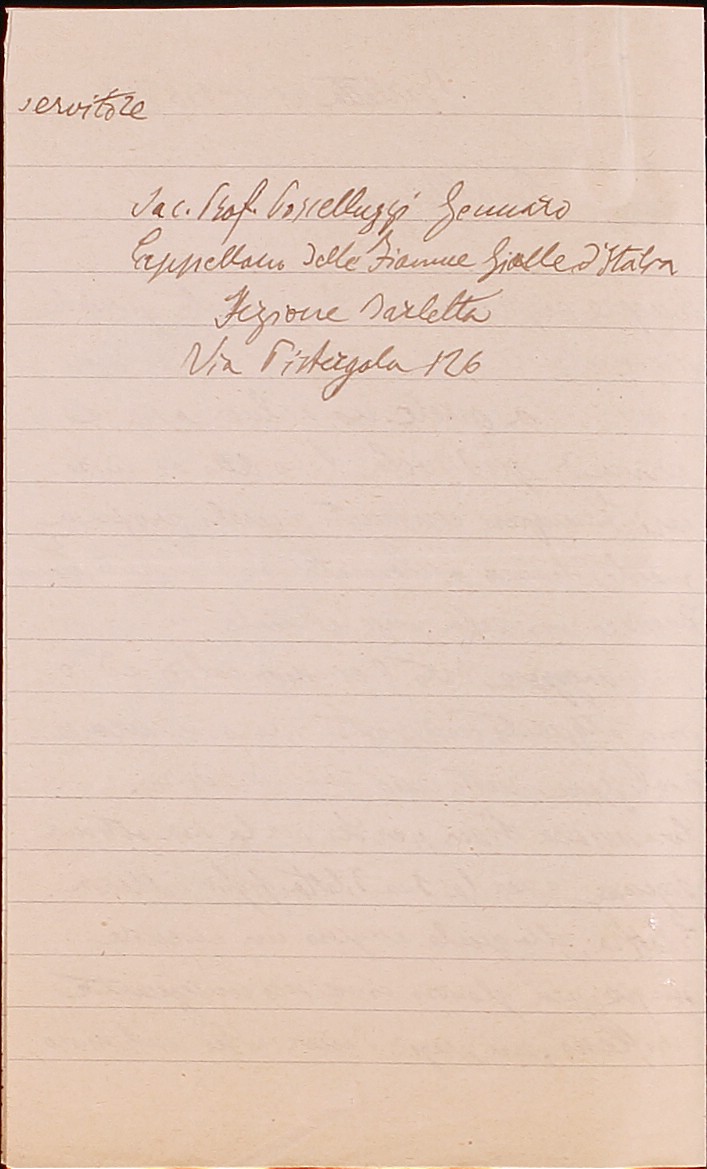 servitore
Sac. Prof. Porcelluzzi Gennaro
Cappellano delle Fiamme Gialle d'Italia
Sezione Barletta
Via Pistergola 126